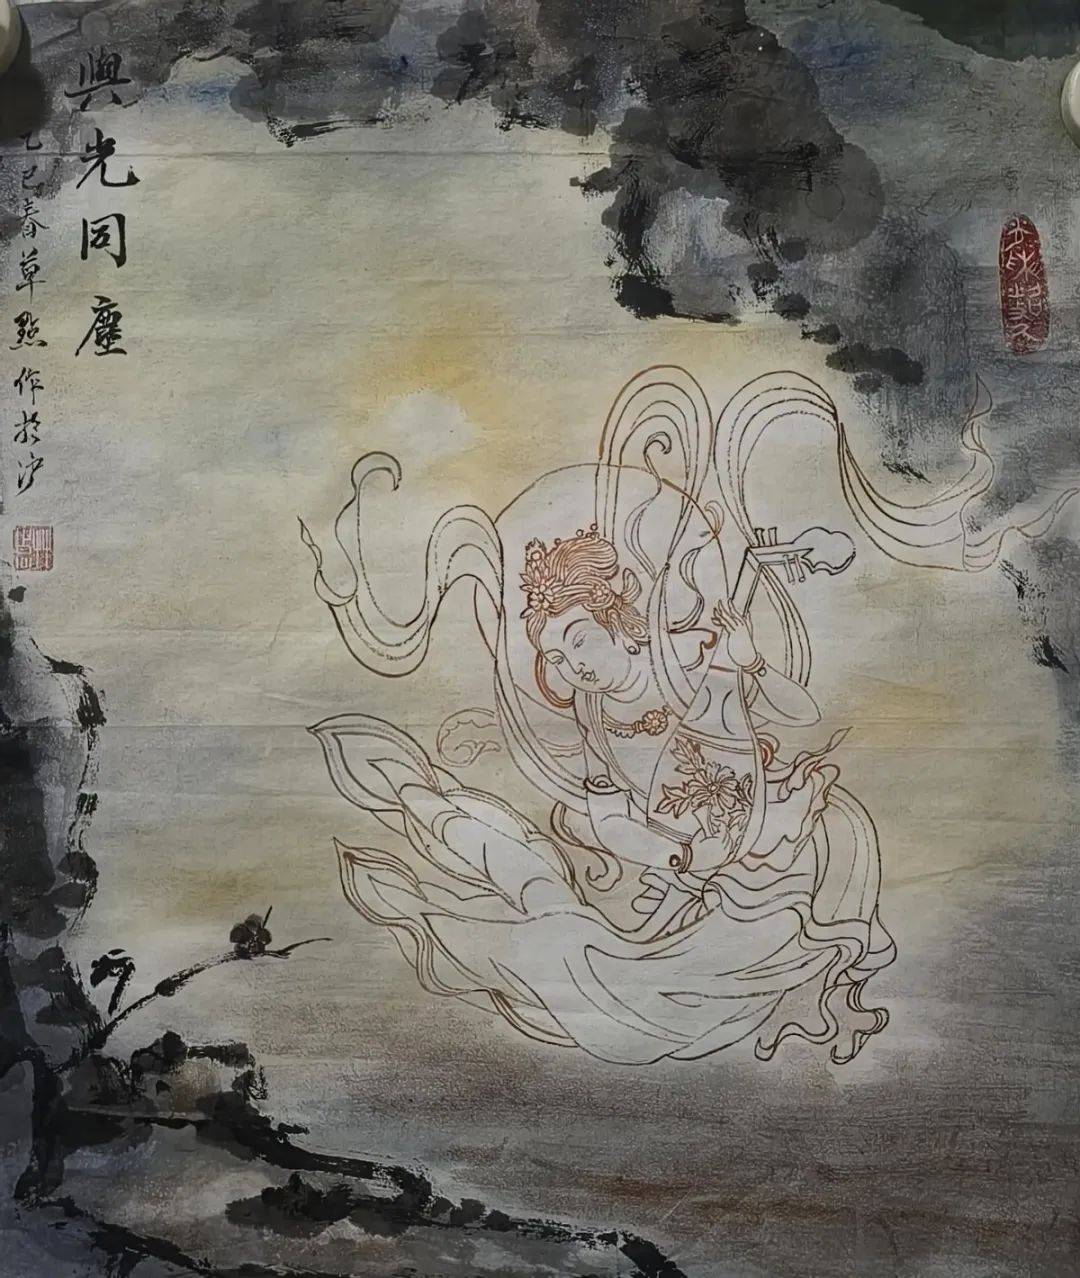 與光同塵
乙巳春草點作於沪